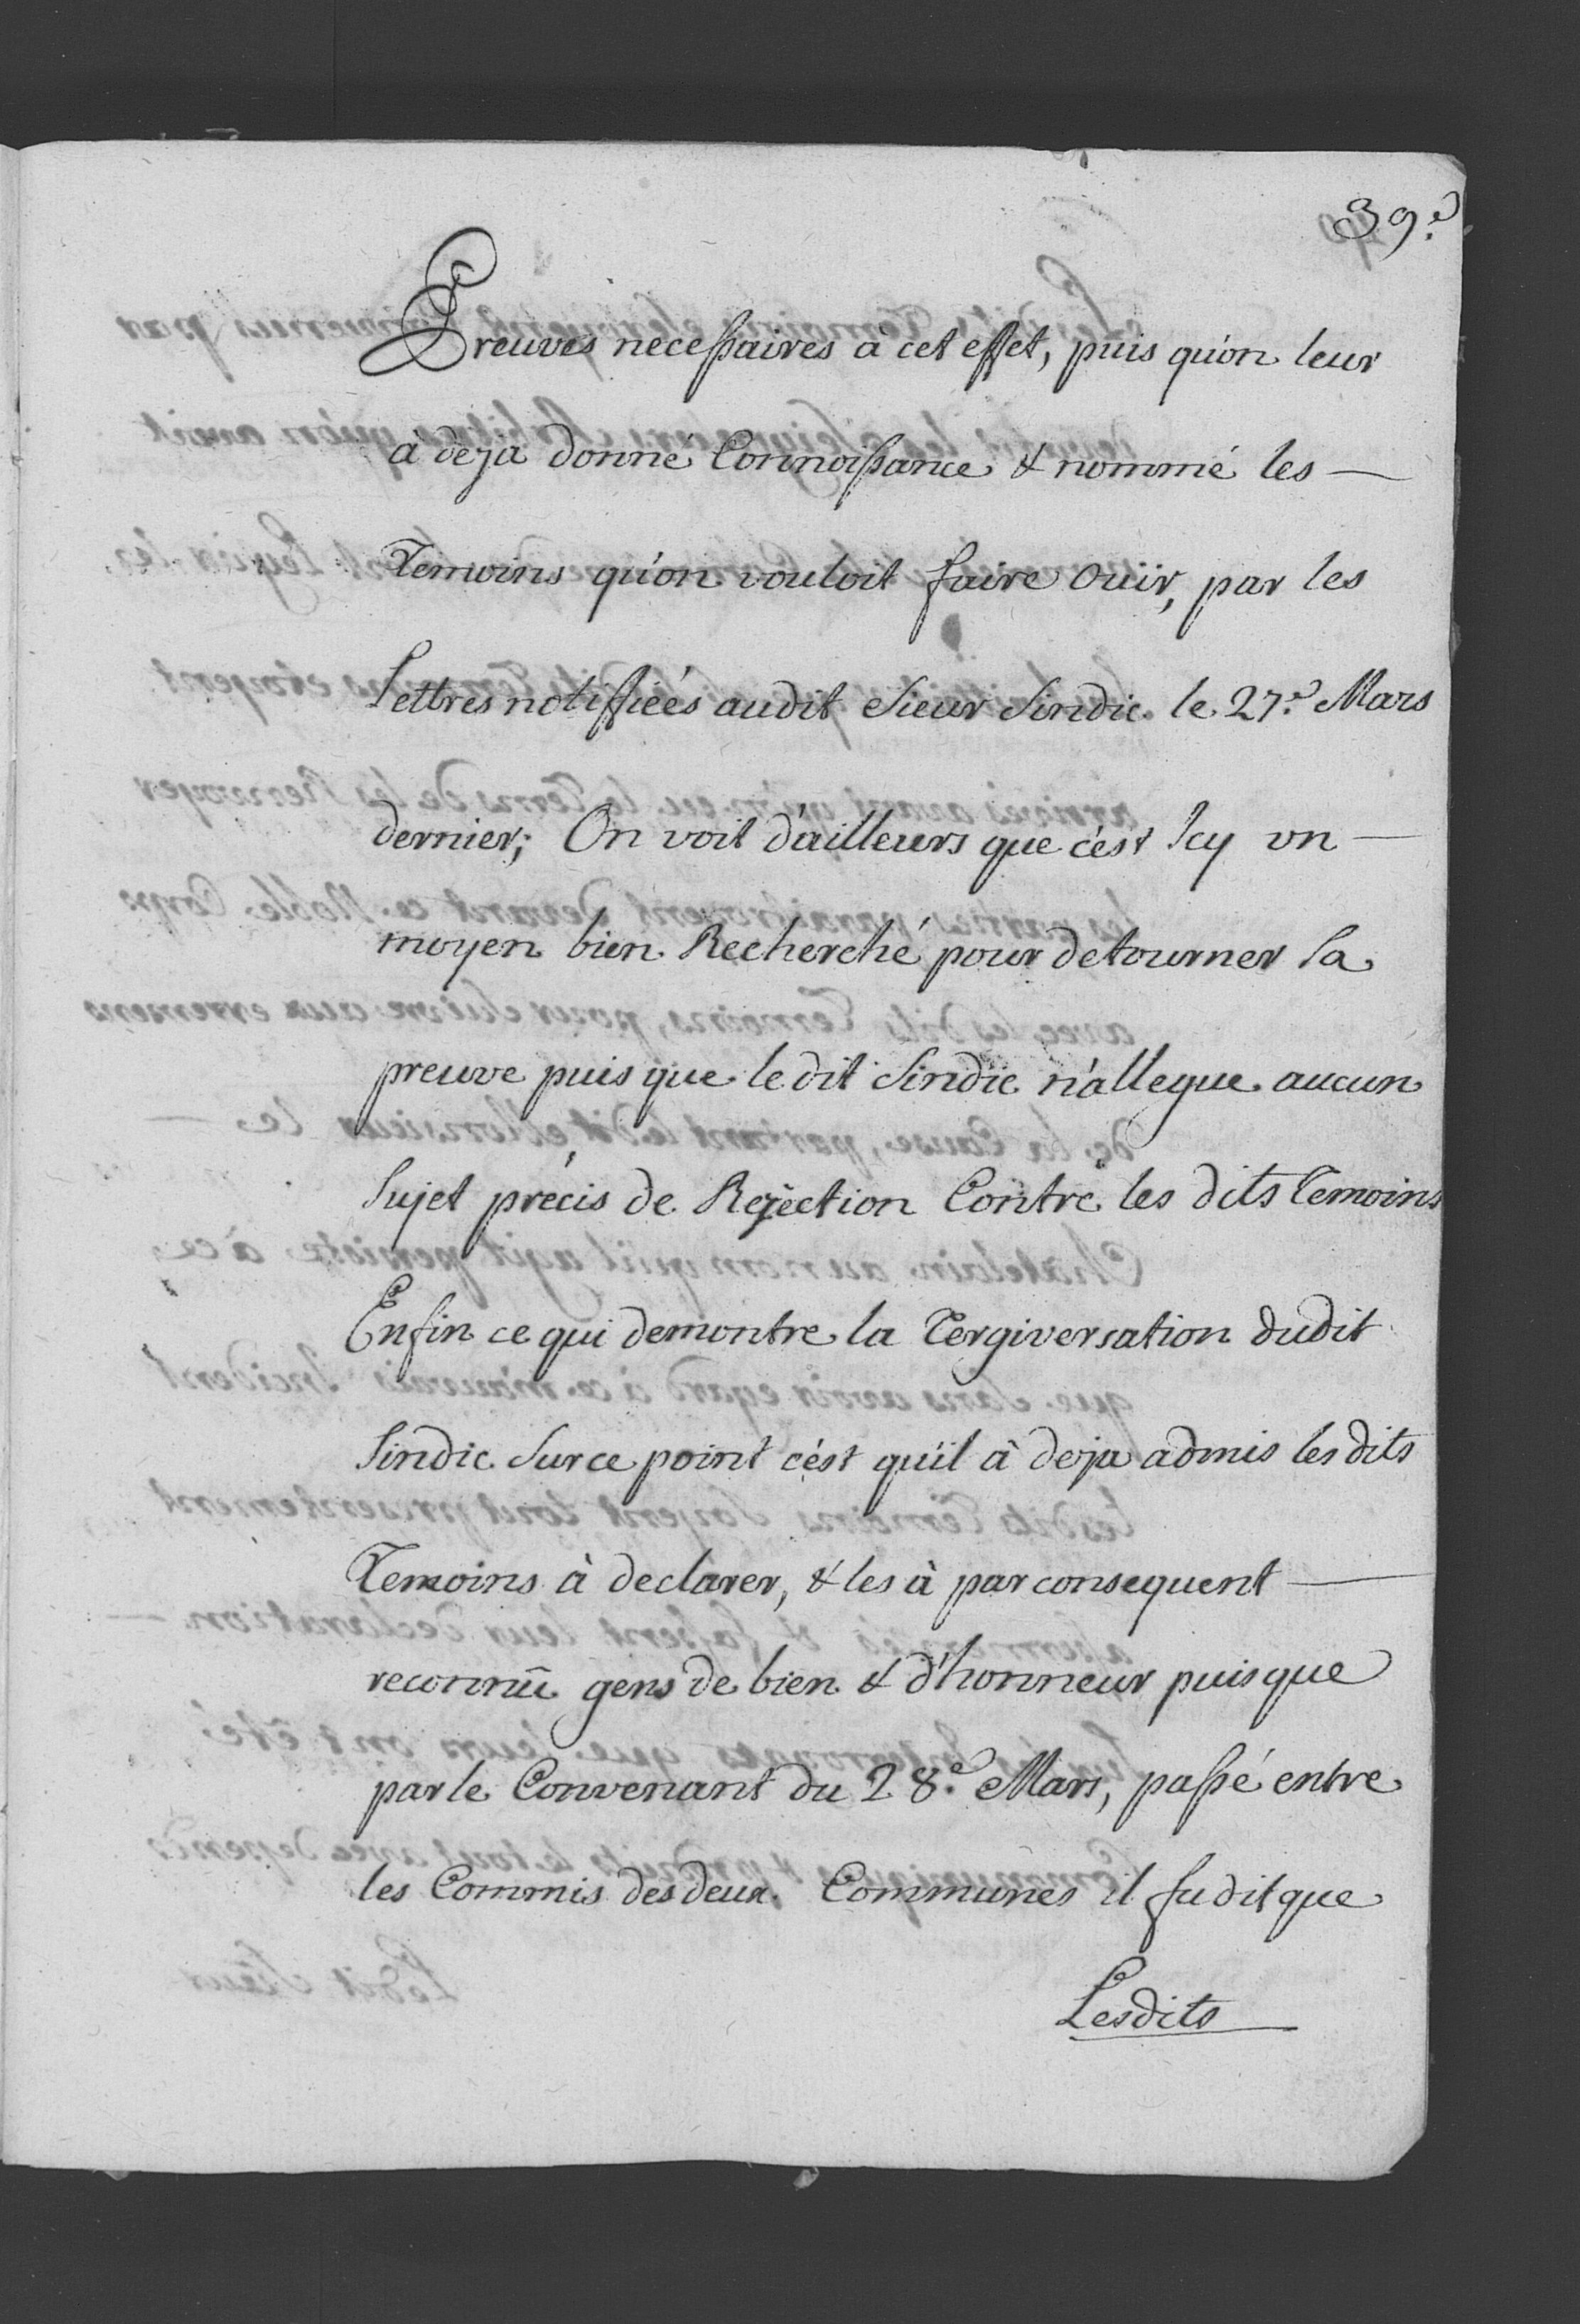 39.e
Preuves necessaires à cet effet, puis qu'on leur
à deja donné Connoissance & nommé les —
Temoins qu'on vouloit faire ouïr, par les
Lettres notiffiées audit Sieur Sindic le 27.e Mars
dernier; On voit d'ailleurs que c'est Icy un —
moyen bien Recherché pour detourner la
preuve puis que le dit Sindic n'allegue aucun
Sujet précis de Rejection Contre les dits Temoins
Enfin ce qui demontre la Tergiversation dudit
Sindic Sur ce point c'est qu'il à deja admis les dits
Temoins à declarer, & les à par consequent —
reconnû gens de bien & d'honneur puisque
par le Convenant du 28.e Mars, passé entre
les Commis des deux Communes il fu dit que
Lesdits